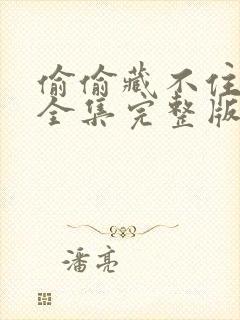 偷偷藏不住
全集完整版
潘亮